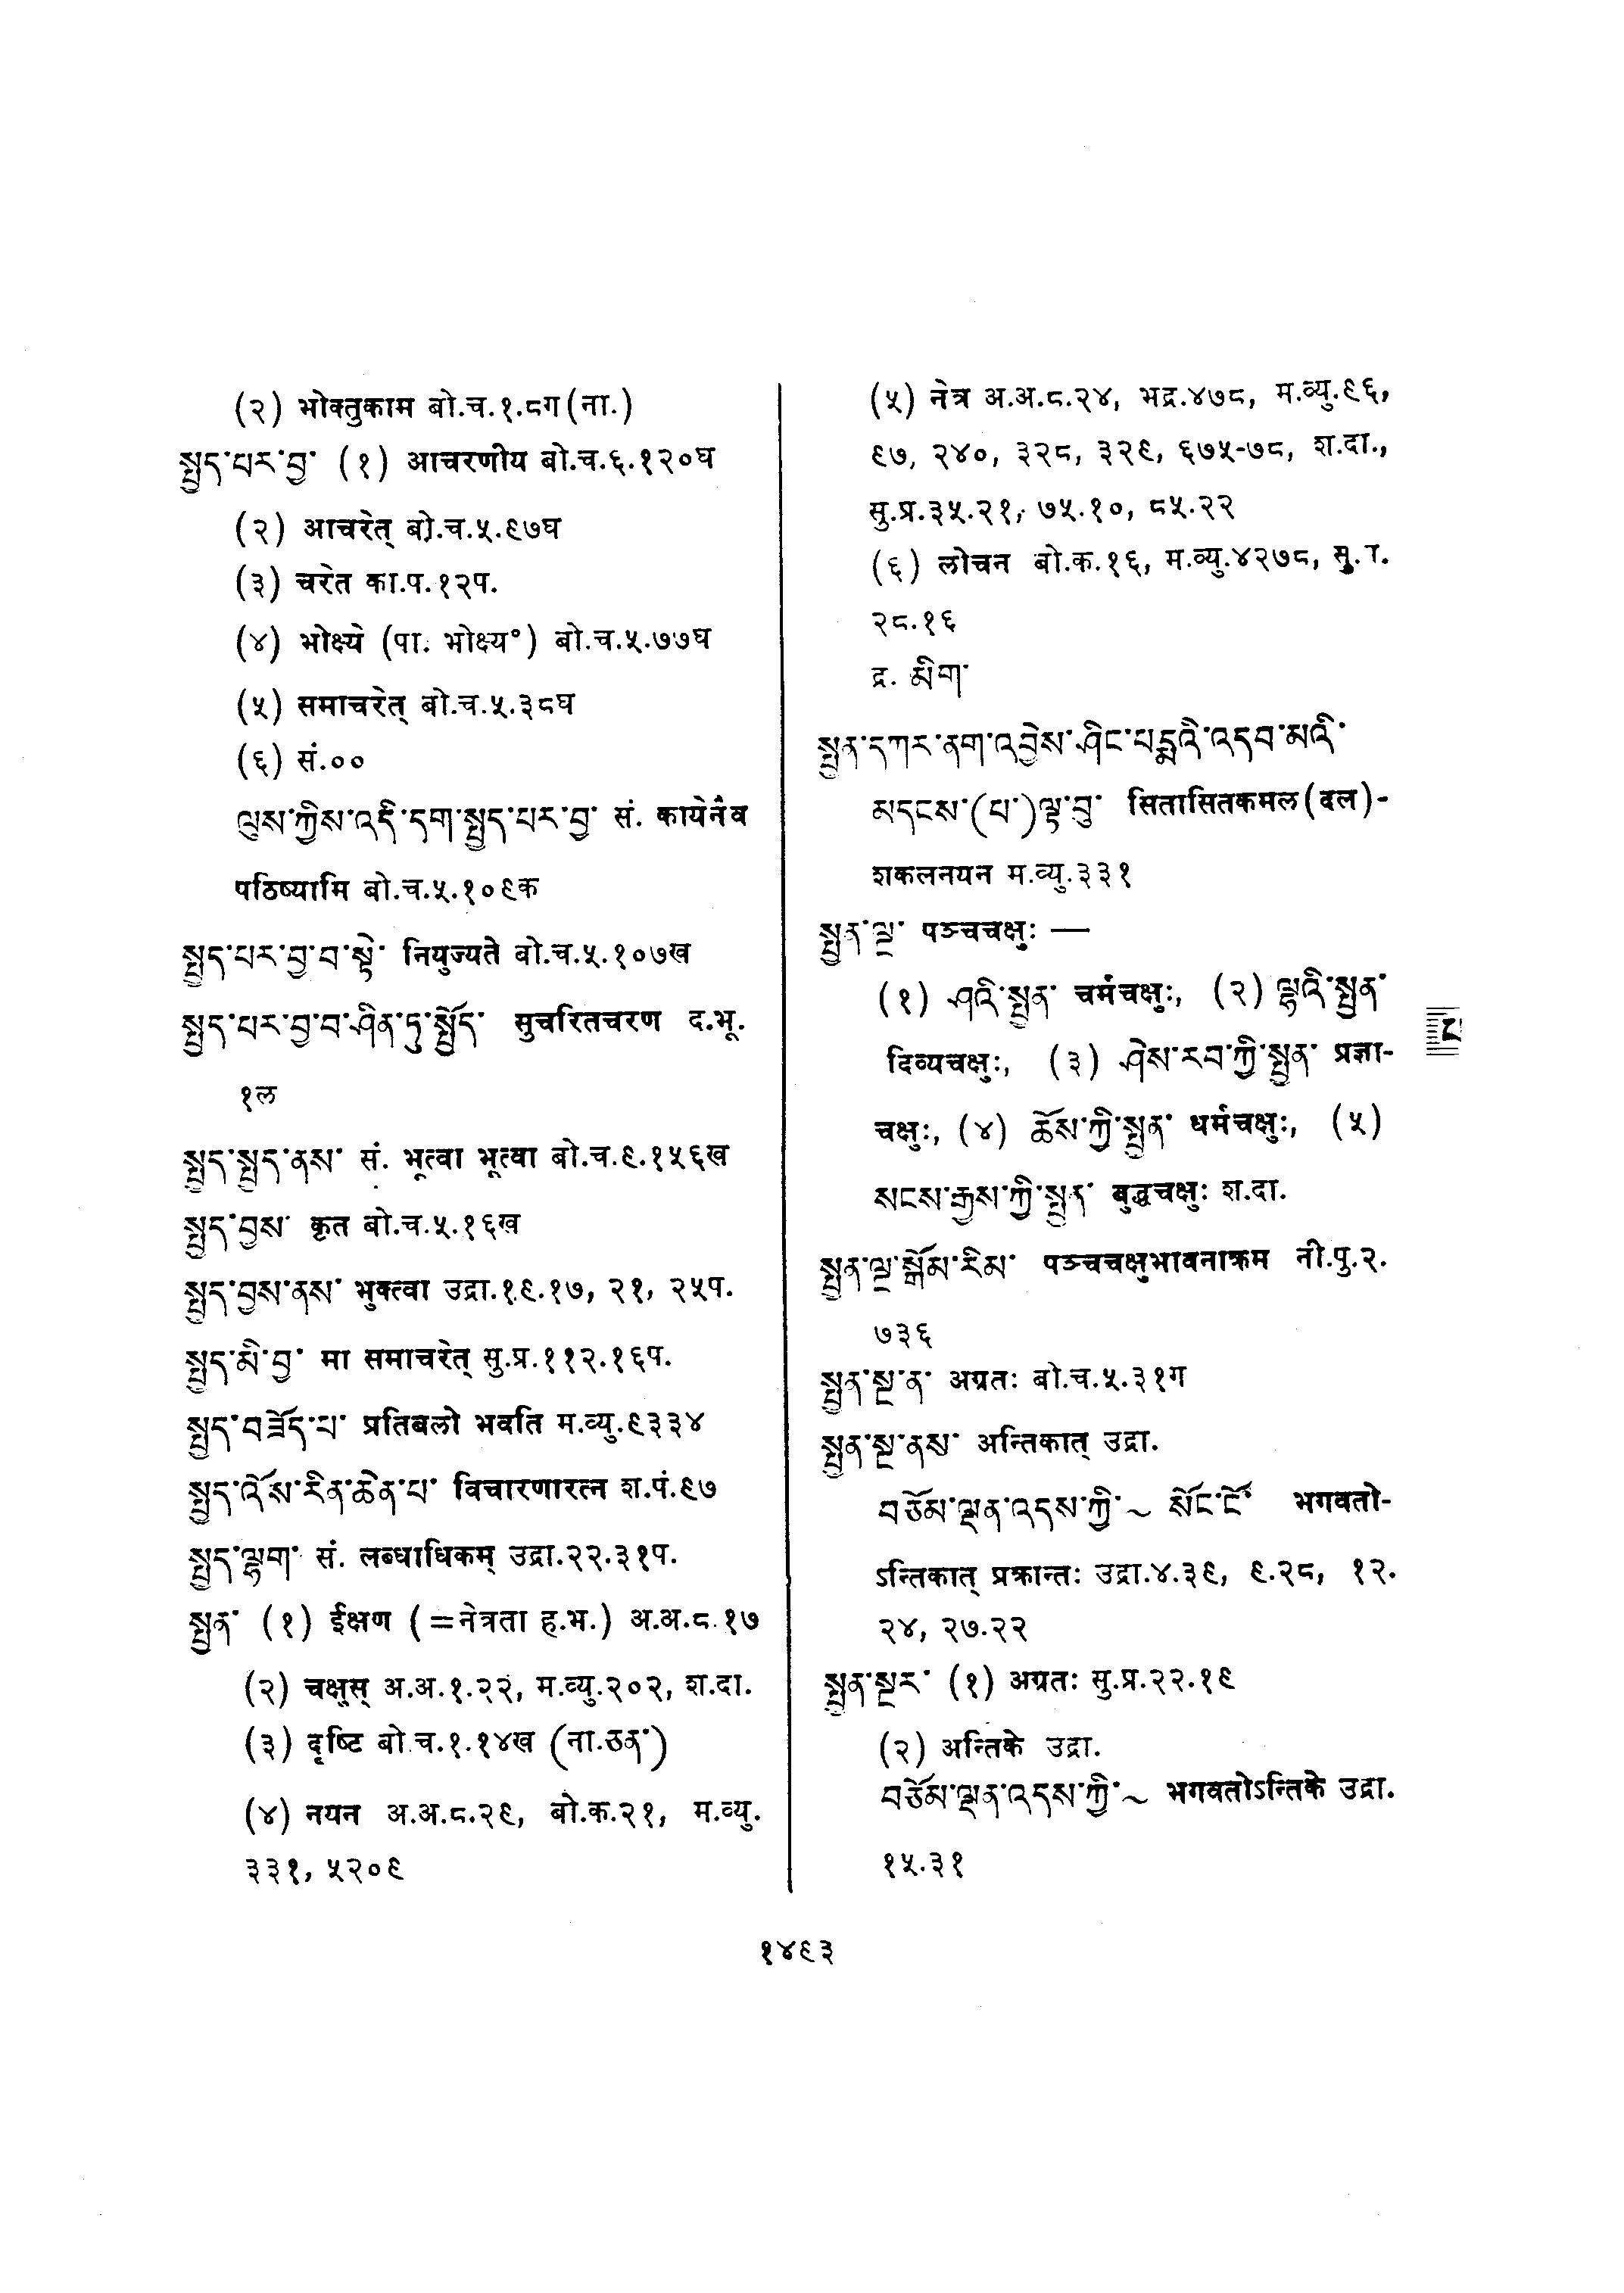 (२) भोक्तुकाम बो.च.१.८ग(ना.)
སྤྱད་པར་བྱ་ (१) आचरणीय बो.च.६.१२०घ
(२) आचरेत् बो.च.५.९७घ
(३) चरेत का.प.१२प.
(४) भोक्ष्ये (पा. भोक्ष्य°) बो.च.५.७७घ
(५) समाचरेत् बो.च.५.३८घ
(६) सं.००
ལུས་ཀྱིས་འདི་དག་སྤྱད་པར་བྱ་ सं. कायेनैव
पठिष्यामि बो.च.५.१०९क
སྤྱད་པར་བྱ་བ་སྟེ་ नियुज्यते बो.च.५.१०७ख
སྤྱད་པར་བྱ་བ་ཤིན་ཏུ་སྤྱོད་ सुचरितचरण द.भू.
१ल
སྤྱད་སྤྱད་ནས་ सं. भूत्वा भूत्वा बो.च.९.१५६ख
སྤྱད་བྱས་ कृत बो.च.५.१६ख
སྤྱད་བྱས་ནས་ भुक्त्वा उद्रा.१९.१७, २१, २५प.
སྤྱད་མི་བྱ་ मा समाचरेत् सु.प्र.११२.१६प.
སྤྱད་བཟོད་པ་ प्रतिबलो भवति म.व्यु.९३३४
སྤྱད་འོས་རིན་ཆེན་པ་ विचारणारत्न श.पं.९७
སྤྱད་ལྷག་ सं. लब्धाधिकम् उद्रा.२२.३१प.
སྤྱན་ (१) ईक्षण (=नेत्रता ह.भ.) अ.अ.८.१७
(२) चक्षुस् अ.अ.१.२२, म.व्यु.२०२, श.दा.
(३) दृष्टि बो.च.१.१४ख (ना.ཅན་)
(४) नयन अ.अ.८.२९, बो.क.२१, म.व्यु.
३३१, ५२०९
(५) नेत्र अ.अ.८.२४, भद्र.४७८, म.व्यु.९६,
९७, २४०, ३२८, ३२९, ६७५-७८, श.दा.,
सु.प्र.३५.२१, ७५.१०, ८५.२२
(६) लोचन बो.क.१६, म.व्यु.४२७८,
२८.१६
द्र. མིག་
སྤྱན་དཀར་ནག་འབྱེས་ཤིང་པདྨའི་འདབ་མའི་
མདངས་(པ་)ལྟ་བུ་ सितासितकमल(दल)-
शकलनयन म.व्यु.३३१
སྤྱན་ལྔ་ पञ्चचक्षुः —
(१) ཤའི་སྤྱན་ चर्मचक्षुः, (२) ལྷའི་སྤྱན་
दिव्यचक्षुः, (३) ཤེས་རབ་ཀྱི་སྤྱན་ प्रज्ञा-
चक्षुः, (४) ཆོས་ཀྱི་སྤྱན་ धर्मचक्षुः, (५)
སངས་རྒྱས་ཀྱི་སྤྱན་ बुद्धचक्षुः श.दा.
སྤྱན་ལྔ་སྒོམ་རིམ་ पञ्चचक्षुभावनाक्रम नी.पु.२.
७३६
སྤྱན་སྔ་ན་ अग्रतः बो.च.५.३१ग
སྤྱན་སྔ་ནས་ अन्तिकात् उद्रा.
བཅོམ་ལྡན་འདས་ཀྱི་~ སོང་ངོ་ भगवतो-
ऽन्तिकात् प्रक्रान्तः उद्रा.४.३९, ९.२८, १२.
२४, २७.२२
སྤྱན་སྔར་ (१) अग्रतः सु.प्र.२२.१९
(२) अन्तिके उद्रा.
བཅོམ་ལྡན་འདས་ཀྱི་~ भगवतोऽन्तिके उद्रा.
१५.३१
१४९३